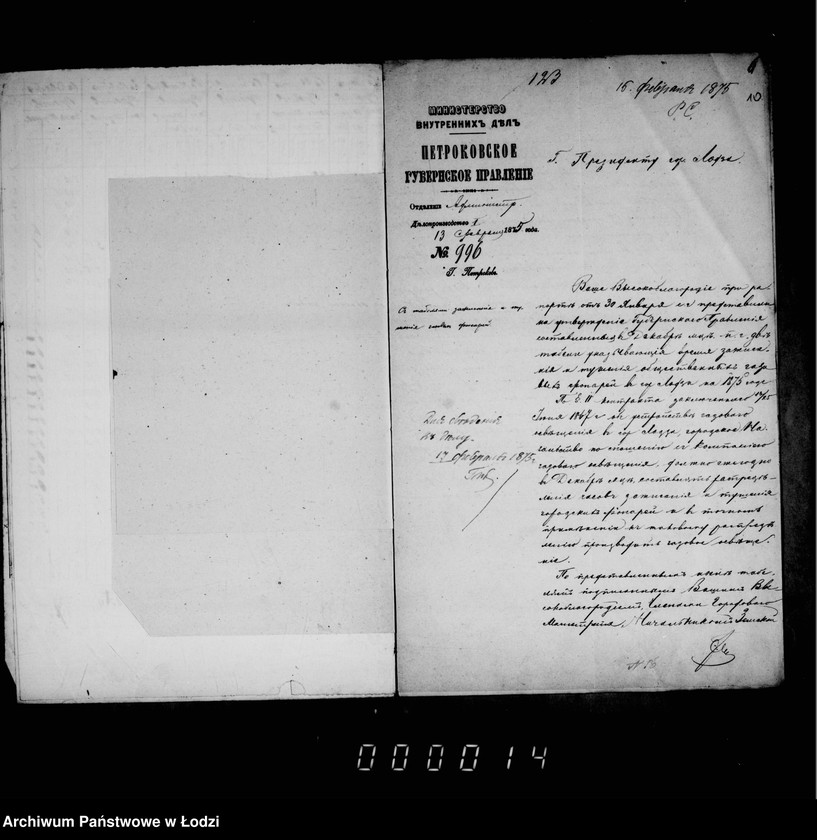 123
15 февраля 1875
Р.С.
10
МИНИСТЕРСТВО
ВНУТРЕННИХЪ ДѢЛЪ
ПЕТРОКОВСКОЕ
ГУБЕРНСКОЕ ПРАВЛЕНІЕ
Отдѣленіе Администр.
Дѣлопроизводство I
13 февраля 1875 года.
№ 996
Г. Петроковъ
Г. Президенту гор. Лодзи.
Ваше Высокоблагородіе при ра-
портѣ отъ 30 Января с. г. представили
на утвержденіе Губернскаго Правленія
составленныя въ Декабрѣ мцѣ п. г. двѣ
таблицы указывающія время зажига-
нія и тушенія общественныхъ газо
выхъ фонарей в гор. Лодзи на 1875 годъ
По § 11 контракта заключеннаго 13/25
Іюня 1867 г. объ устройствѣ газоваго
освѣщенія в гор. Лодзи, городское На-
чальство по отношенію къ Компаніи
газоваго освѣщенія, должно ежегодно
въ Декабрѣ мцѣ составлять распредѣ-
ленія часовъ зажиганія и тушенія
городскихъ фонарей и в точномъ
примѣненіи къ таковому распредѣ
ленію производить газовое освѣще-
ніе.
По представленнымъ нынѣ таб-
лицамъ подписаннымъ Вашимъ Вы-
сокоблагородіемъ, Членами Городоваго
Магистрата, Начальникомъ Земской
къ дѣлу.
17 февраля 1875.
000014
Archiwum Państwowe w Łodzi